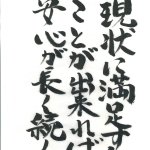 現状に満足す
ことが出来れば
安心が長く続く